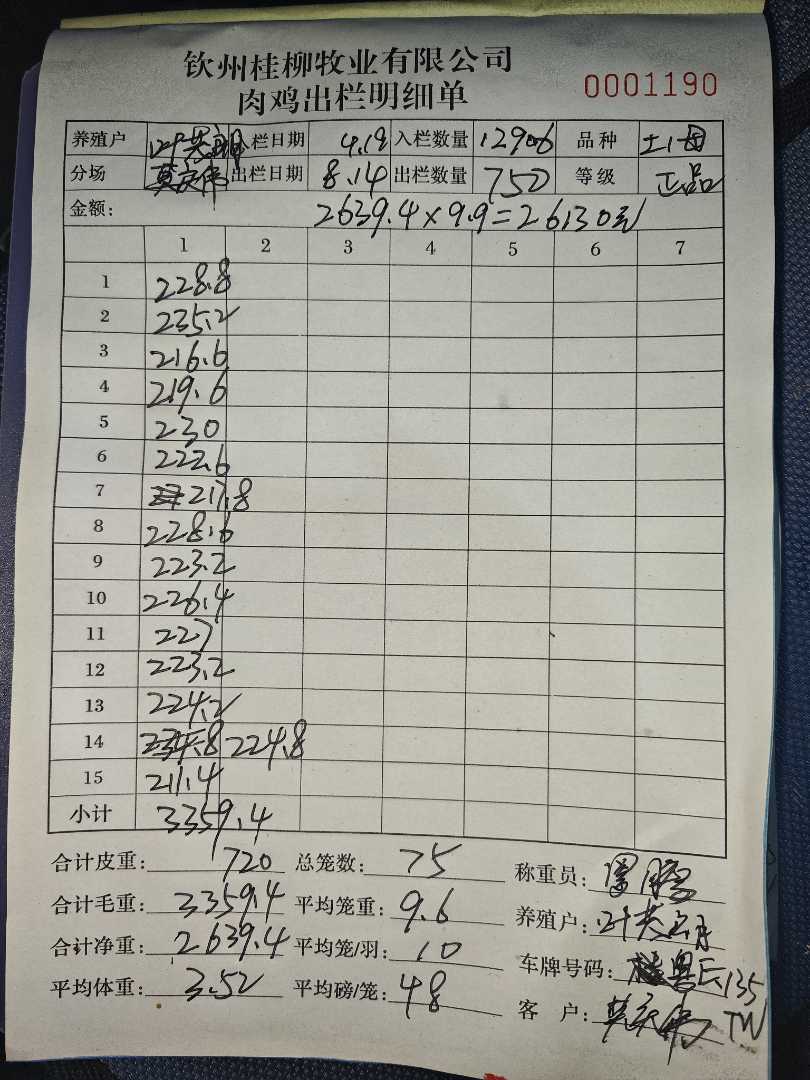 钦州桂柳牧业有限公司
肉鸡出栏明细单 0001190
养殖户 叶共 入栏日期 4.19 入栏数量 12906 品种 土1母
分场 莫庆伟 出栏日期 8.14 出栏数量 750 等级 正品
金额: 2639.4×9.9=26130元
1 2 3 4 5 6 7
1 228.8
2 235.2
3 216.6
4 219.6
5 230
6 222.6
7 217.8
8 228.6
9 223.2
10 226.4
11 227
12 223.2
13 224.2
14 234.8 224.8
15 211.4
小计 3359.4
合计皮重: 720 总笼数: 75 称重员:
合计毛重: 3359.4 平均笼重: 9.6 养殖户: 叶共
合计净重: 2639.4 平均笼/羽: 10 车牌号码: 粤E135TW
平均体重: 3.52 平均磅/笼: 48 客户: 莫庆伟